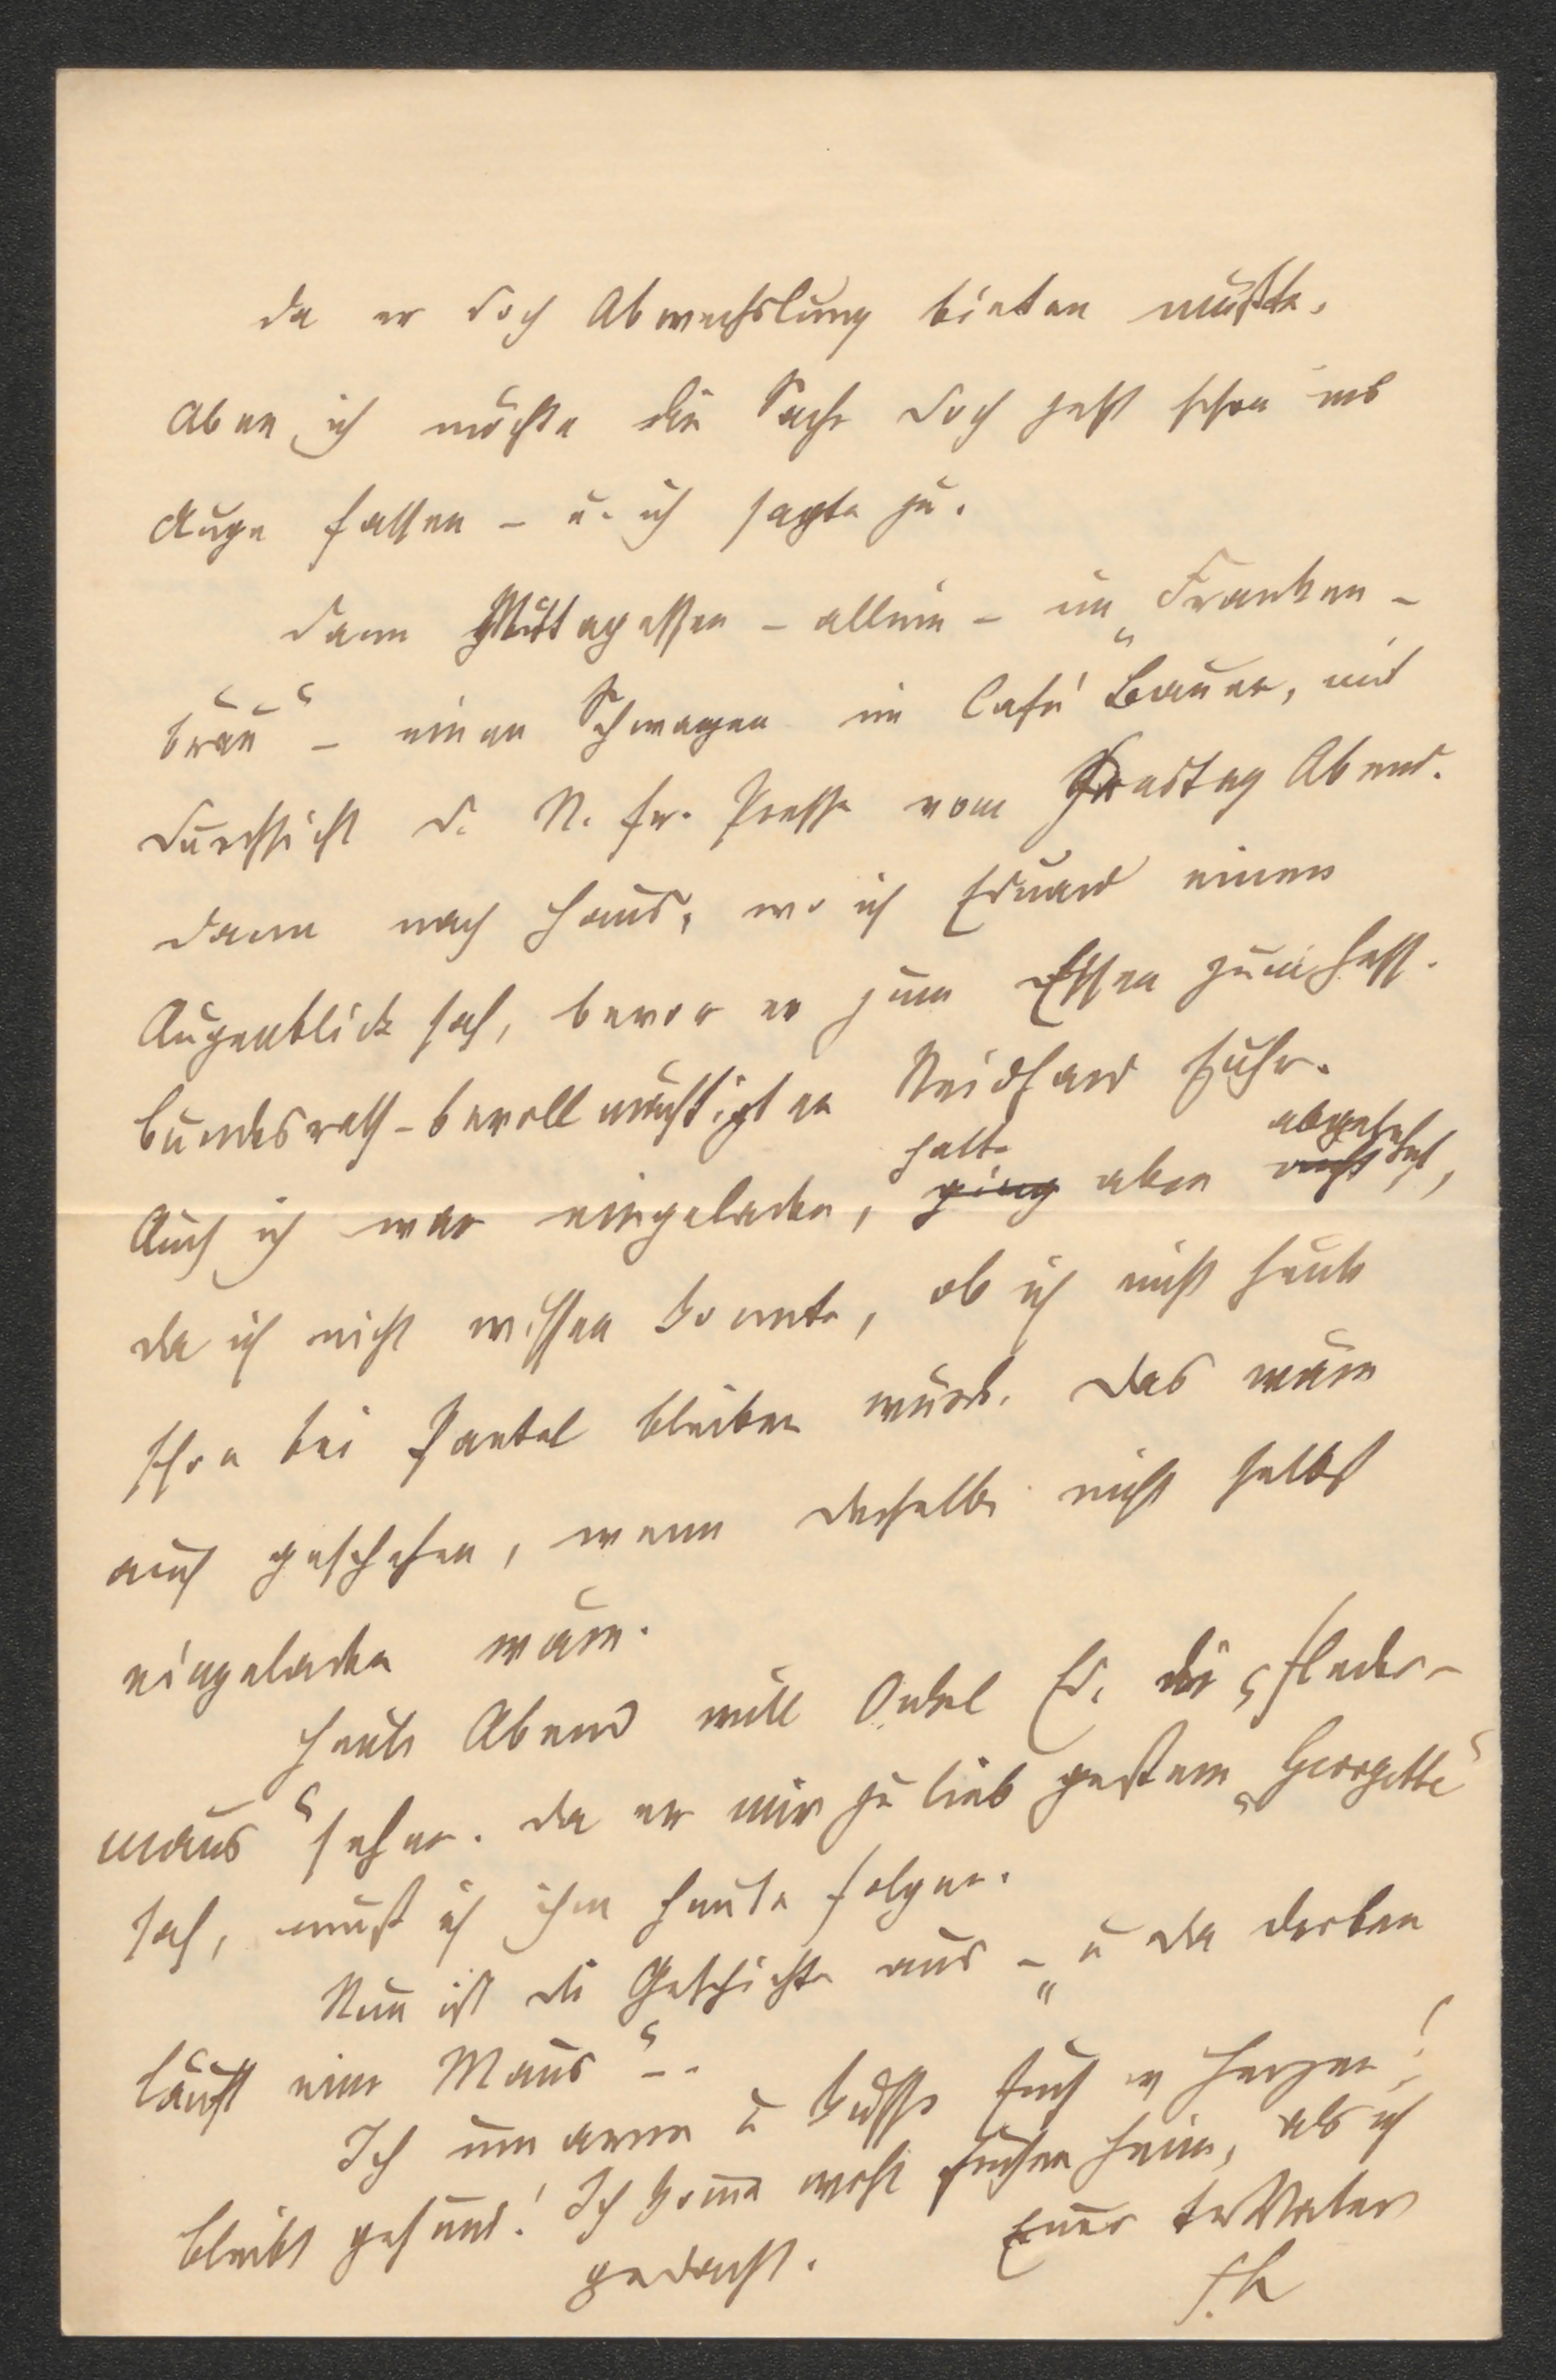 da er doch Abwechslung bieten mußte.
Aber ich möchte die Sache doch jetzt schon ins
Auge fassen – u. ich sagte zu.
Dann Mittagessen – allein – im „Franken-
bräu“ – einen Schwarzen im Café Bauer, mit
Durchsicht d. N. fr. Presse vom Abend.
Dann nach Haus, wo ich Eduard einen
Augenblick sah, bevor er zum Essen zum hess.
Bundesrath-bevollmächtigten Neidhard fuhr.
Auch ich war eingeladen, hatte ging aber abgelehnt,
da ich nicht wissen konnte, ob ich nicht heute
schon bei Pantel bleiben würde. Das wäre
auch geschehen, wenn derselbe nicht selbst
eingeladen wäre.
Heute Abend will Onkel Ed. die „Fleder-
maus“ sehen. Da er mir zu lieb gestern „Georgette“
sah, muß ich ihm heute folgen.
Nun ist die Geschichte aus – „u da drüben
läuft eine Maus“ –.
Ich umarme u küsse Euch v Herzen!
bleibt gesund! Ich komme wohl früher heim, als ich
gedacht.
Euer tr Vater